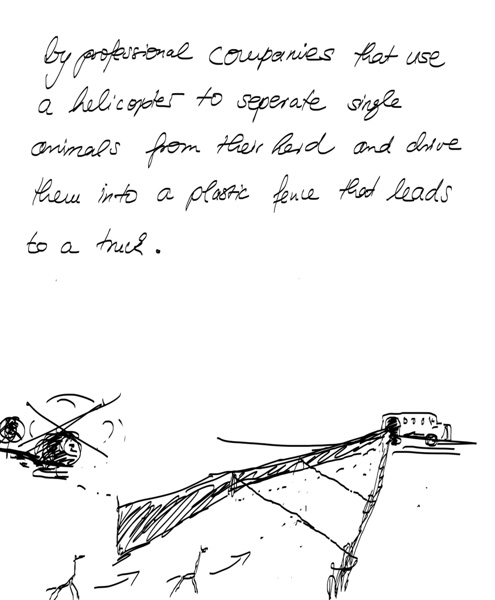 by professional companies that use
a helicopter to seperate single
animals from their herd and drive
them into a plastic fence that leads
to a truck.